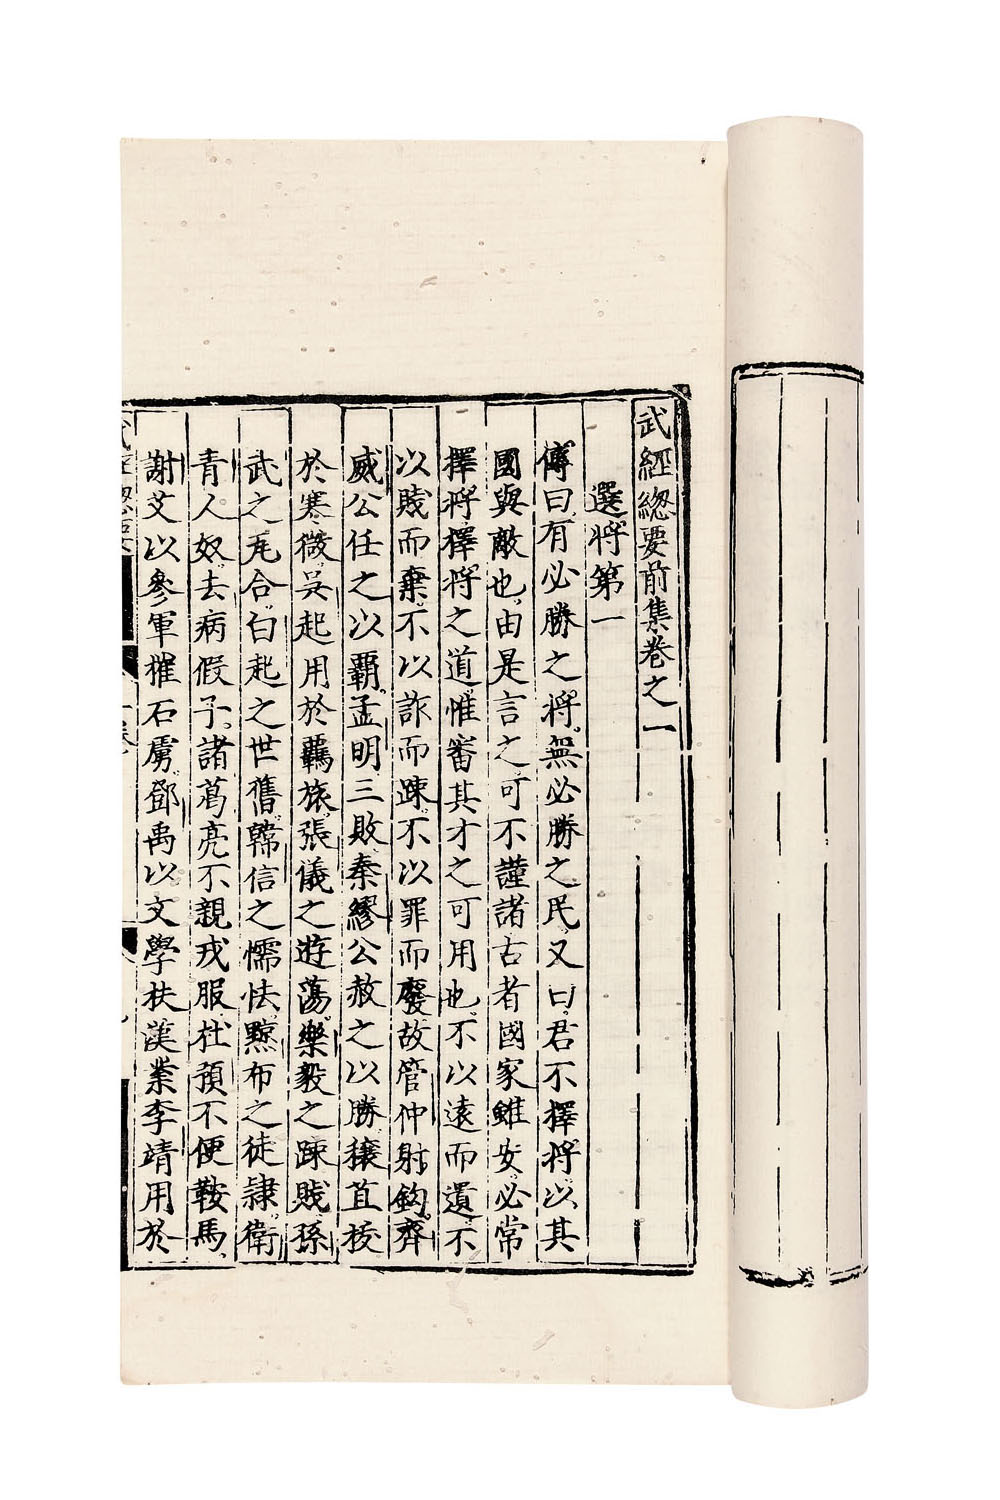 武經緫要前集卷之一
選將第一
傳曰有必勝之將無必勝之民又曰君不擇將以其
國與敵也由是言之可不謹諸古者國家雖安必常
擇將擇將之道惟審其才之可用也不以遠而遺不
以賤而棄不以詐而踈不以罪而廢故管仲射鈎齊
威公任之以覇孟明三敗秦繆公赦之以勝穰苴拔
於寒微吳起用於羈旅張儀之遊蕩樂毅之踈賤孫
武之瓦合白起之世舊韓信之懦怯黥布之徒隸衛
青人奴去病假子諸葛亮不親戎服杜預不便鞍馬
謝艾以參軍摧石虜鄧禹以文學扶漢業李靖用於